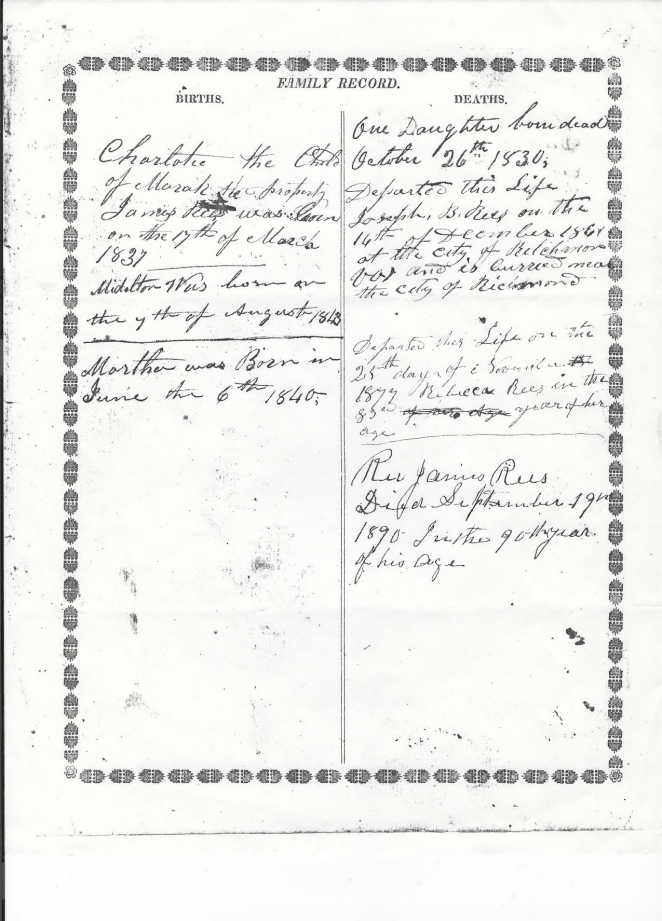 FAMILY RECORD.
BIRTHS.
Charlotte the Child
of Mariah the property
James Rees was Born
on the 17th of March
1837
Midelton Was born on
the 7th of August 1843
Martha was Born in
June the 6th 1840;
DEATHS.
One Daughter born dead
October 26th 1830;
Departed this Life
Joseph. B. Rees on the
14th of December 1861
at the City of
and is burried near
the City of Richmond
Departed this Life on the
25th day of
1877 Rebecca Rees in the
83rd of her Age year of her
age
Rev James Rees
Died September 19th
1890 In the 90th year
of his Age